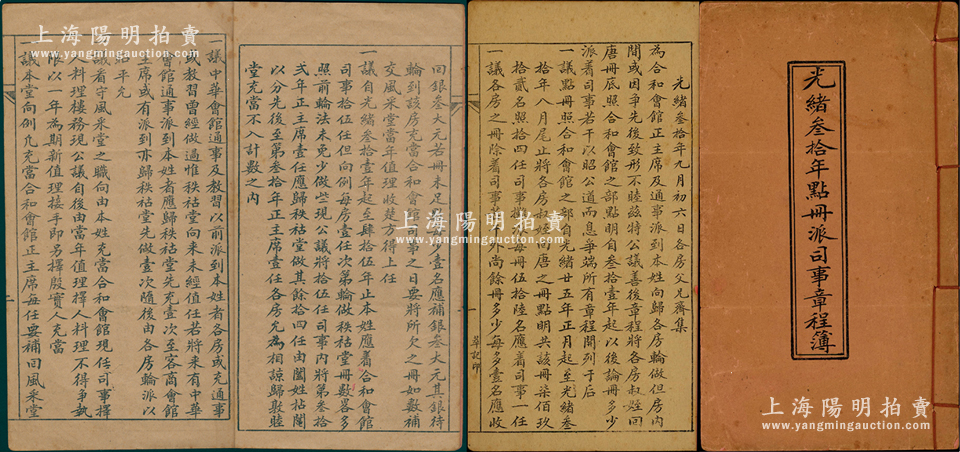 光緒叁拾年點冊派司事章程簿
光緒叁拾年九月初六日各房父兄齊集
為合和會館正主席及通事派到本姓向歸各房輪做但房內
間或因爭先後致形不睦茲特公議善後章程將各房叔姪回
唐冊底照合和會館之部點明自叁拾壹年起以後論冊多少
派着司事若干以昭公道而息爭端所有章程開列于后
一議點冊照合和會館之部自光緒廿五年正月起至光緒叁
拾年八月尾止將各房叔姪回唐之冊點明共該冊柒佰玖
拾貳名照拾四任司事
每冊伍拾陸名應着司事一任
一議各房之冊除着司事
外尚餘冊多少每多壹名應收
回銀叁大元若冊未足
壹名應補銀叁大元其銀待
輪到該房充當合和會館司事之日要將所欠之冊如數補
交風采堂當年值理收楚方得上任
一議自光緒叁拾壹年起至肆拾伍年止本姓應着合和會館
司事拾伍任但向例每房壹任次第輪做秩祜堂冊數畧多
照前輪法未免少做些現公議將拾伍任司事內將第叁拾
弍年正主席壹任應歸秩祜堂做其餘拾四任由闔姓拈鬮
以分先後至第叁拾
年正主席壹任各房允為相諒歸敦睦
堂充當不入計數之內
一議中華會館通事及教習以前派到本姓者各房或充通事
或教習曾經做過惟秩祜堂向來未經值任若將來有中華
會館通事派到本姓者應歸秩祜堂先充壹次至客商會館
主席或有派到亦歸秩祜堂先做壹次隨後由各房輪派以
昭平允
一議看守風采堂之職向由本姓充當合和會館現任司事擇
人料理樓務現公議自後由當年值理擇人料理不得爭執
限以一年為期新值理接手即另擇殷實人充當
一議本堂向例凡充當合和會館正主席每任要補回風采堂
二
上海陽明拍賣
www.yangmingauction.com
上海陽明拍賣
www.yangmingauction.com
上海陽明拍賣
www.yangmingauction.com
上海陽明拍賣
www.yangmingauction.com